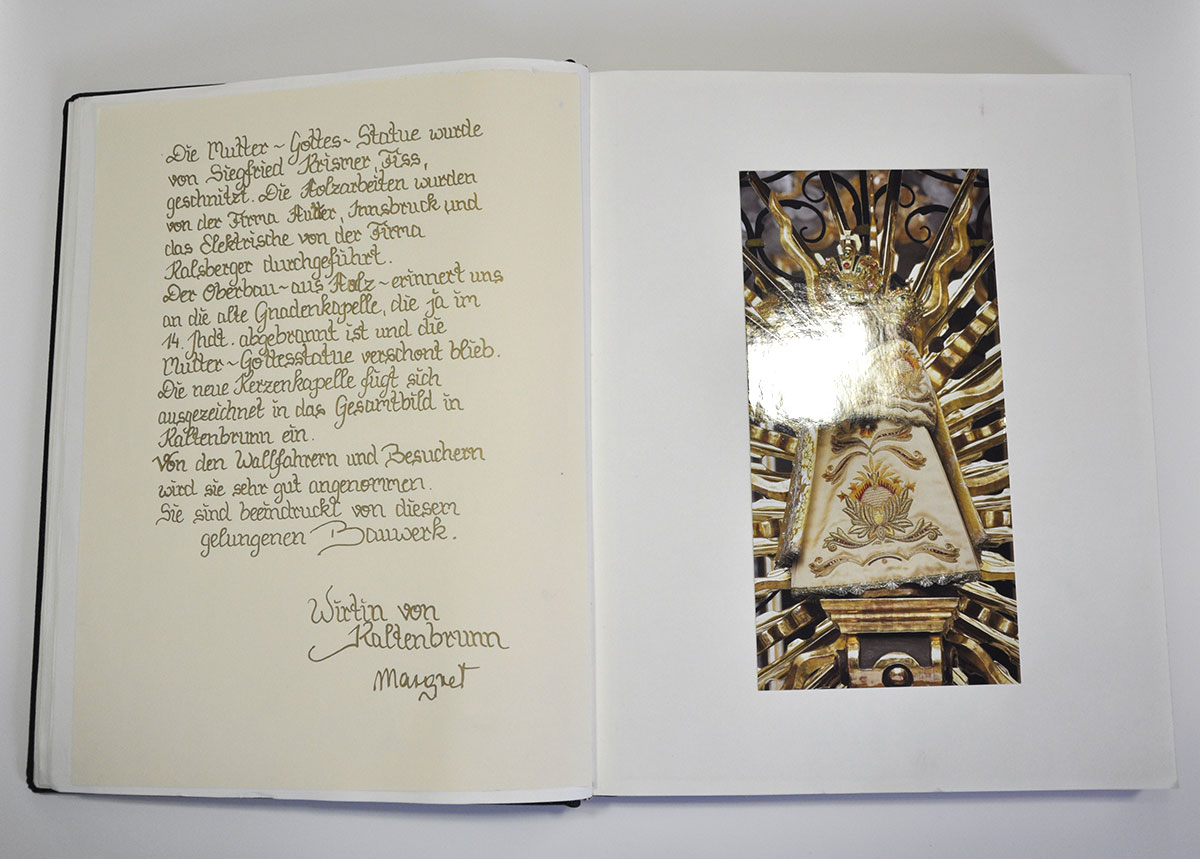 Die Mutter~Gottes~Statue wurde
von Siegfried Krismer, Fiss,
geschnitzt. Die Holzarbeiten wurden
von der Firma Hutter, Innsbruck und
das Elektrische von der Firma
Kalsberger durchgeführt.
Der Oberbau~aus Holz~erinnert uns
an die alte Gnadenkapelle, die ja im
14. Jhdt. abgebrannt ist und die
Mutter~Gottesstatue verschont blieb.
Die neue Kerzenkapelle fügt sich
ausgezeichnet in das Gesamtbild in
Kaltenbrunn ein.
Von den Wallfahrern und Besuchern
wird sie sehr gut angenommen.
Sie sind beeindruckt von diesem
gelungenen Bauwerk.
Wirtin von
Kaltenbrunn
Margret